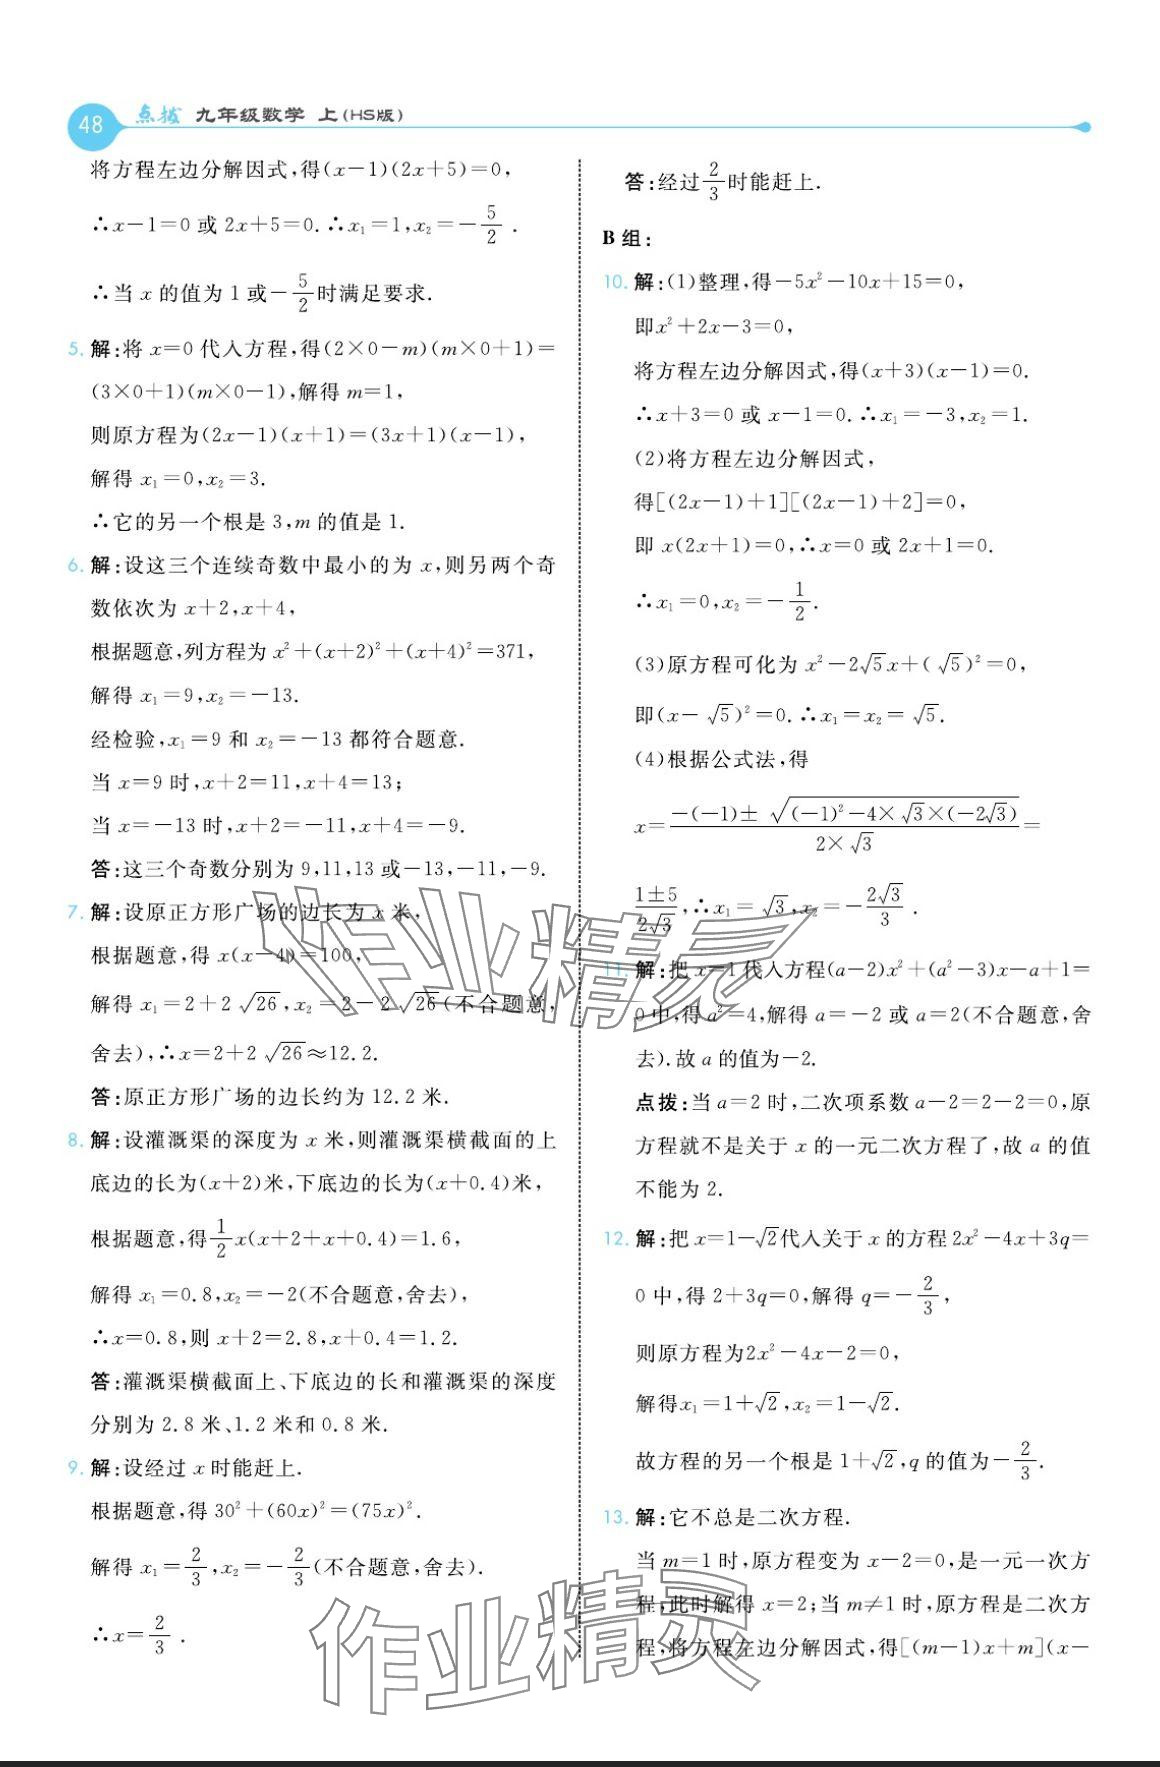 48 点拨 九年级数学 上(HS版)
将方程左边分解因式,得(x－1)(2x＋5)＝0,
∴x－1＝0 或 2x＋5＝0. ∴x₁＝1,x₂＝－5/2 .
∴当 x 的值为 1 或－5/2时满足要求.
5. 解:将 x＝0 代入方程,得(2×0－m)(m×0＋1)＝
(3×0＋1)(m×0－1),解得 m＝1,
则原方程为(2x－1)(x＋1)＝(3x＋1)(x－1),
解得 x₁＝0,x₂＝3.
∴它的另一个根是 3,m 的值是 1.
6. 解:设这三个连续奇数中最小的为 x,则另两个奇
数依次为 x＋2,x＋4,
根据题意,列方程为 x²＋(x＋2)²＋(x＋4)²＝371,
解得 x₁＝9,x₂＝－13.
经检验,x₁＝9 和 x₂＝－13 都符合题意.
当 x＝9 时,x＋2＝11,x＋4＝13;
当 x＝－13 时,x＋2＝－11,x＋4＝－9.
答:这三个奇数分别为 9,11,13 或－13,－11,－9.
7. 解:设原正方形广场的边长为 x 米,
根据题意,得 x(x－4)＝100,
解得 x₁＝2＋2√26,x₂＝2－2√26(不合题意,
舍去),∴x＝2＋2√26≈12.2.
答:原正方形广场的边长约为 12.2 米.
8. 解:设灌溉渠的深度为 x 米,则灌溉渠横截面的上
底边的长为(x＋2)米,下底边的长为(x＋0.4)米,
根据题意,得1/2x(x＋2＋x＋0.4)＝1.6,
解得 x₁＝0.8,x₂＝－2(不合题意,舍去),
∴x＝0.8,则 x＋2＝2.8,x＋0.4＝1.2.
答:灌溉渠横截面上、下底边的长和灌溉渠的深度
分别为 2.8 米、1.2 米和 0.8 米.
9. 解:设经过 x 时能赶上.
根据题意,得 30²＋(60x)²＝(75x)².
解得 x₁＝2/3,x₂＝－2/3(不合题意,舍去).
∴x＝2/3 .
答:经过2/3时能赶上.
B 组:
10. 解:(1)整理,得－5x²－10x＋15＝0,
即x²＋2x－3＝0,
将方程左边分解因式,得(x＋3)(x－1)＝0.
∴x＋3＝0 或 x－1＝0. ∴x₁＝－3,x₂＝1.
(2)将方程左边分解因式,
得[(2x－1)＋1][(2x－1)＋2]＝0,
即 x(2x＋1)＝0,∴x＝0 或 2x＋1＝0.
∴x₁＝0,x₂＝－1/2.
(3)原方程可化为 x²－2√5x＋(√5)²＝0,
即(x－√5)²＝0. ∴x₁＝x₂＝√5.
(4)根据公式法,得
x＝(－(－1)±√((－1)²－4×√3×(－2√3)))/(2×√3)＝
(1±5)/(2√3),∴x₁＝√3,x₂＝－2√3/3 .
11. 解:把 x＝1代入方程(a－2)x²＋(a²－3)x－a＋1＝
0中,得a²＝4,解得 a＝－2 或 a＝2(不合题意,舍
去).故 a 的值为－2.
点拨:当 a＝2 时,二次项系数 a－2＝2－2＝0,原
方程就不是关于 x 的一元二次方程了,故 a 的值
不能为 2.
12. 解:把 x＝1－√2代入关于 x 的方程 2x²－4x＋3q＝
0 中,得 2＋3q＝0,解得 q＝－2/3,
则原方程为2x²－4x－2＝0,
解得x₁＝1＋√2,x₂＝1－√2.
故方程的另一个根是 1＋√2,q 的值为－2/3.
13. 解:它不总是二次方程.
当 m＝1 时,原方程变为 x－2＝0,是一元一次方
程,此时解得 x＝2;当 m≠1 时,原方程是二次方
程,将方程左边分解因式,得[(m－1)x＋m](x－
作业精灵
作业精灵